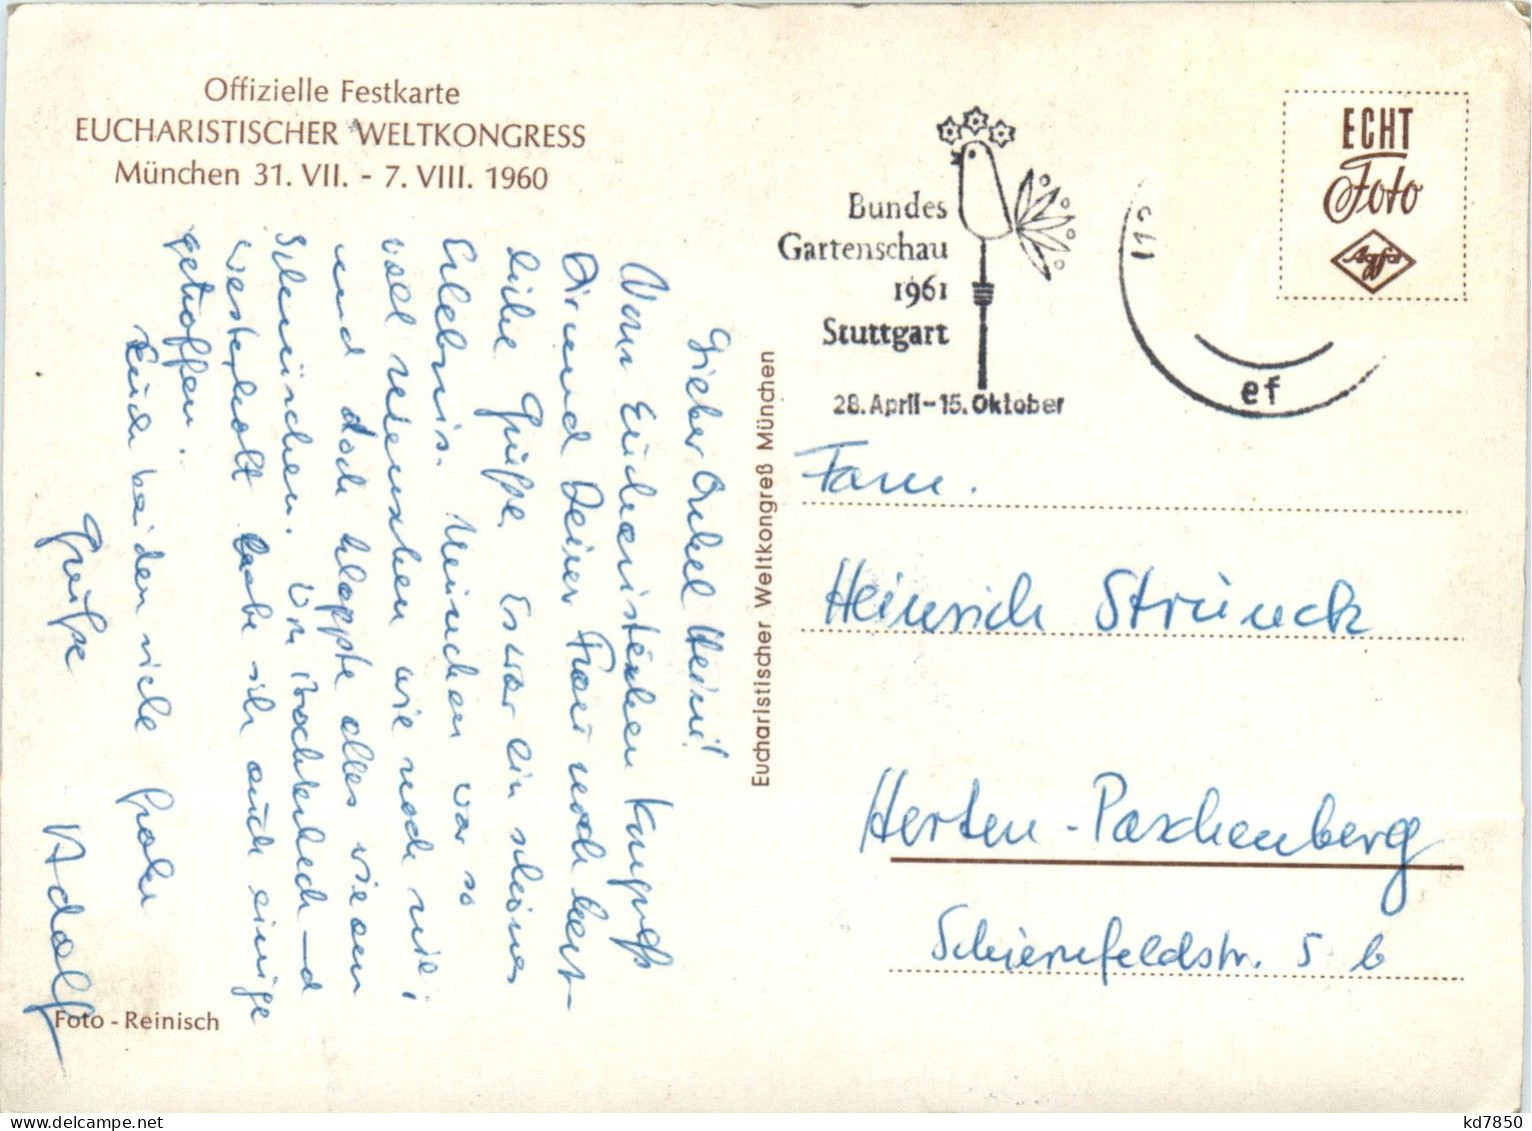 Offizielle Festkarte
EUCHARISTISCHER WELTKONGRESS
München 31. VII. - 7. VIII. 1960
Lieber Onkel Heini!
Vom Eucharistischen Kongreß
Dir und Deiner Frau noch herz-
liche Grüße. Es war ein schönes
Erlebnis. München war so
voll Menschen wie noch nie;
und doch klappte alles wie am
Schnürchen. Von
westerholt habe ich auch einige
getroffen.
Euch beiden viele frohe
Grüße
Adolf
Foto - Reinisch
Eucharistischer Weltkongreß München
Bundes
Gartenschau
1961
Stuttgart
28. April-15. Oktober
ef
ECHT
Foto
Agfa
Fam.
Heinrich Strünck
Herten-Paschenberg
Schiernfeldstr. 5 b
kd7850
delcampe.net